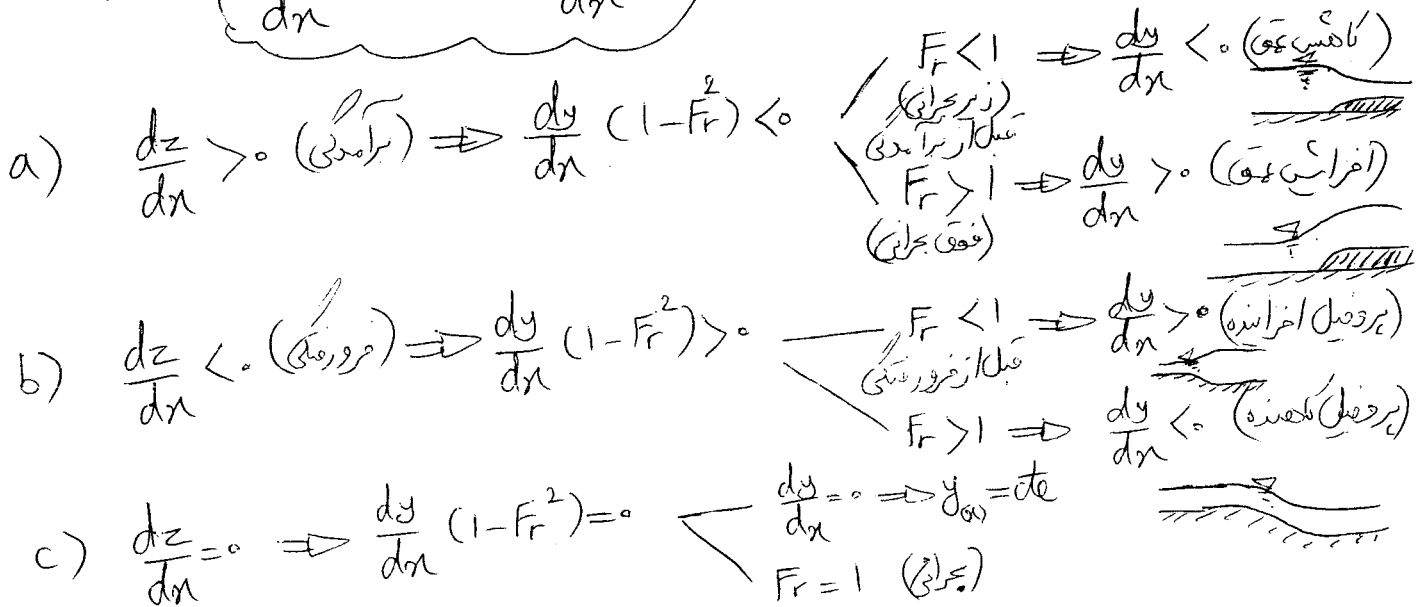 dx dx
a) dz/dx > 0 (برآمدگی) ⇒ dy/dx (1 - Fr²) < 0
Fr < 1 ⇒ dy/dx < 0 (کاهش عمق)
(زیر بحرانی)
قبل از برآمدگی
Fr > 1 ⇒ dy/dx > 0 (افزایش عمق)
(فوق بحرانی)
b) dz/dx < 0 (فرورفتگی) ⇒ dy/dx (1 - Fr²) > 0
Fr < 1 ⇒ dy/dx > 0 (پروفیل افزاینده)
قبل از فرورفتگی
Fr > 1 ⇒ dy/dx < 0 (پروفیل کاهنده)
c) dz/dx = 0 ⇒ dy/dx (1 - Fr²) = 0
dy/dx = 0 ⇒ y(x) = cte
Fr = 1 (بحرانی)